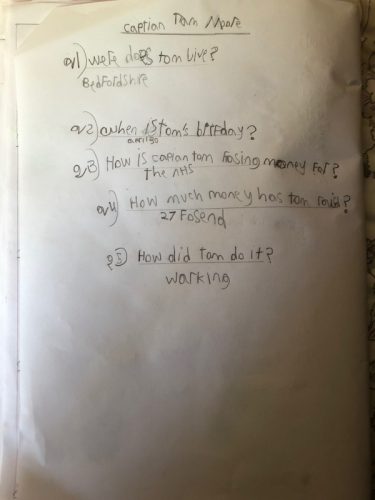 captian Tom Moore
Q1) were does tom live?
BedFordshire
Q2) when is tom's birfday?
april 30
Q3) How is captian tom Fosing money For?
the nHS
Q4) How much money has tom
27 Fosend
Q5) How did Tom do it?
working